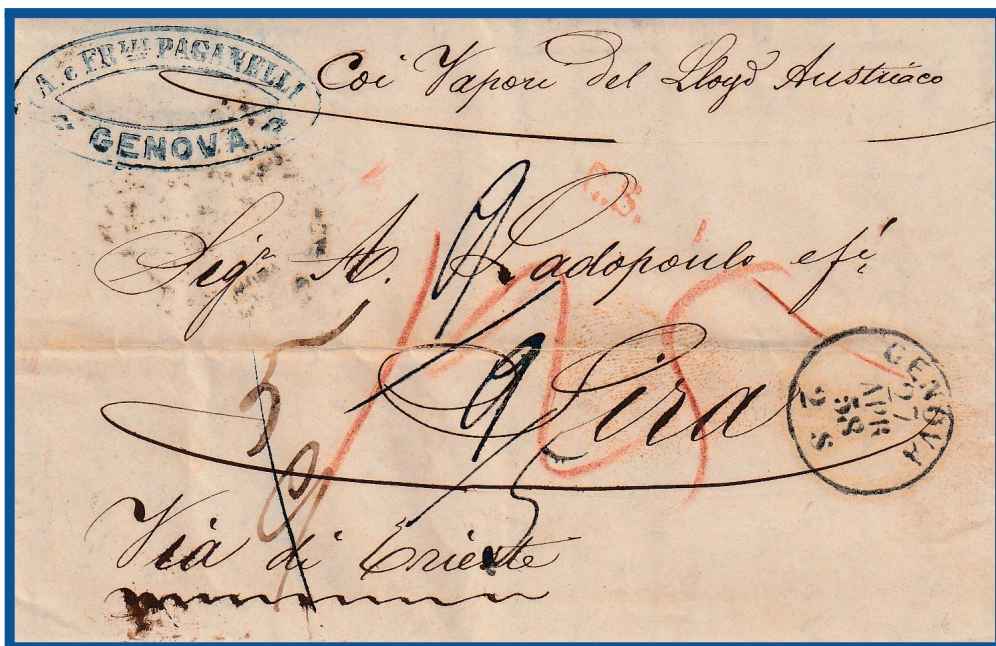 A. e FR.lli PAGANELLI
GENOVA
Coi Vapori del Lloyd Austriaco
C.S.
Sigr A. Ladopoulo efi
Sira
GENOVA
27
APR
58
S
Via di Trieste